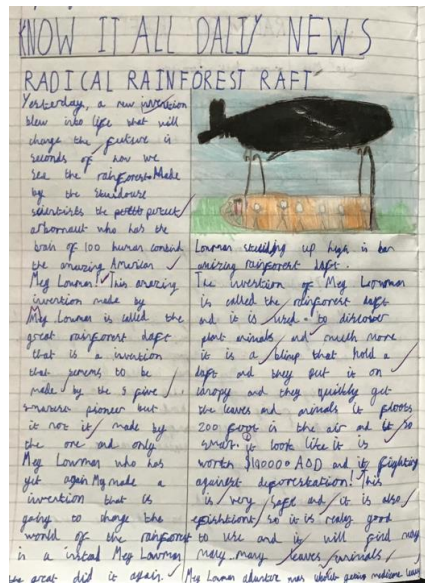 KNOW IT ALL DALIY NEWS
RADICAL RAINFOREST RAFT
Yesterday, a new invention
blew into life that will
change the future in
seconds of how we
see the rainforest. Made
by the
scientists the
arbornaut who has the
brain of 100 human
the amazing American
Meg Lowman! This amazing
invention made by
Meg Lowman is called the
great rainforest raft
that is a invention
that seems to be
made by the 5 five
pioneer but
it not it made by
the one and only
Meg Lowman who has
yet again Meg made a
invention that is
going to change the
world of the rainforest
is a Meg Lowman
the great did it again.
Lowman up high in her
amizing rainforest raft.
The invention of Meg Lowman
is called the rainforest raft
and it is used to discover
plant animals and much more
it is a blimp that hold a
raft and they put it on
canopy and they quickly get
the leaves and animals it floots
200 foot in the air and it so
smart it look like it is
worth $190000 AOD and its fighting
againest deforestation! This
is very safe and it is also
so it is really good
to use and is will find many
many many leaves animals
Meg Lowman